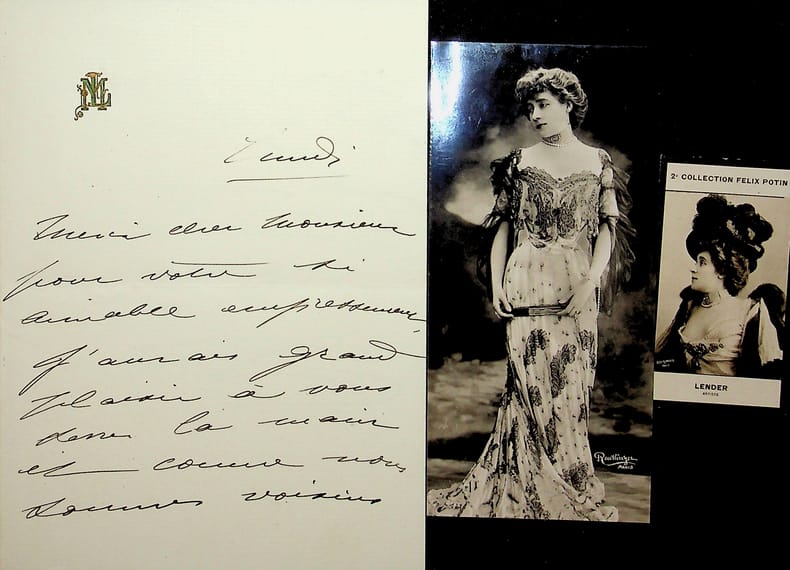 ML
Lundi
Merci cher Monsieur
pour votre si
aimable empressement,
j'aurais grand
plaisir à vous
la main
et comme nous
sommes voisins
Reutlinger
PARIS
2e COLLECTION FELIX POTIN
LENDER
ARTISTE